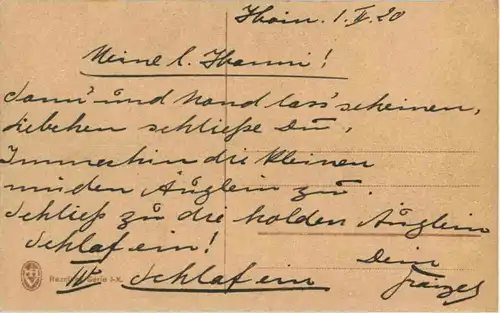 1. II. 20
Meine l. Hanni!
Sonn' und Mond lass' scheinen,
Liebchen schließe Du,
Immerhin die kleinen
müden Äuglein zu.
Schließ zu die holden Äuglein
Schlaf ein!
Schlaf ein
Dein
Franzel
Serie I-X.